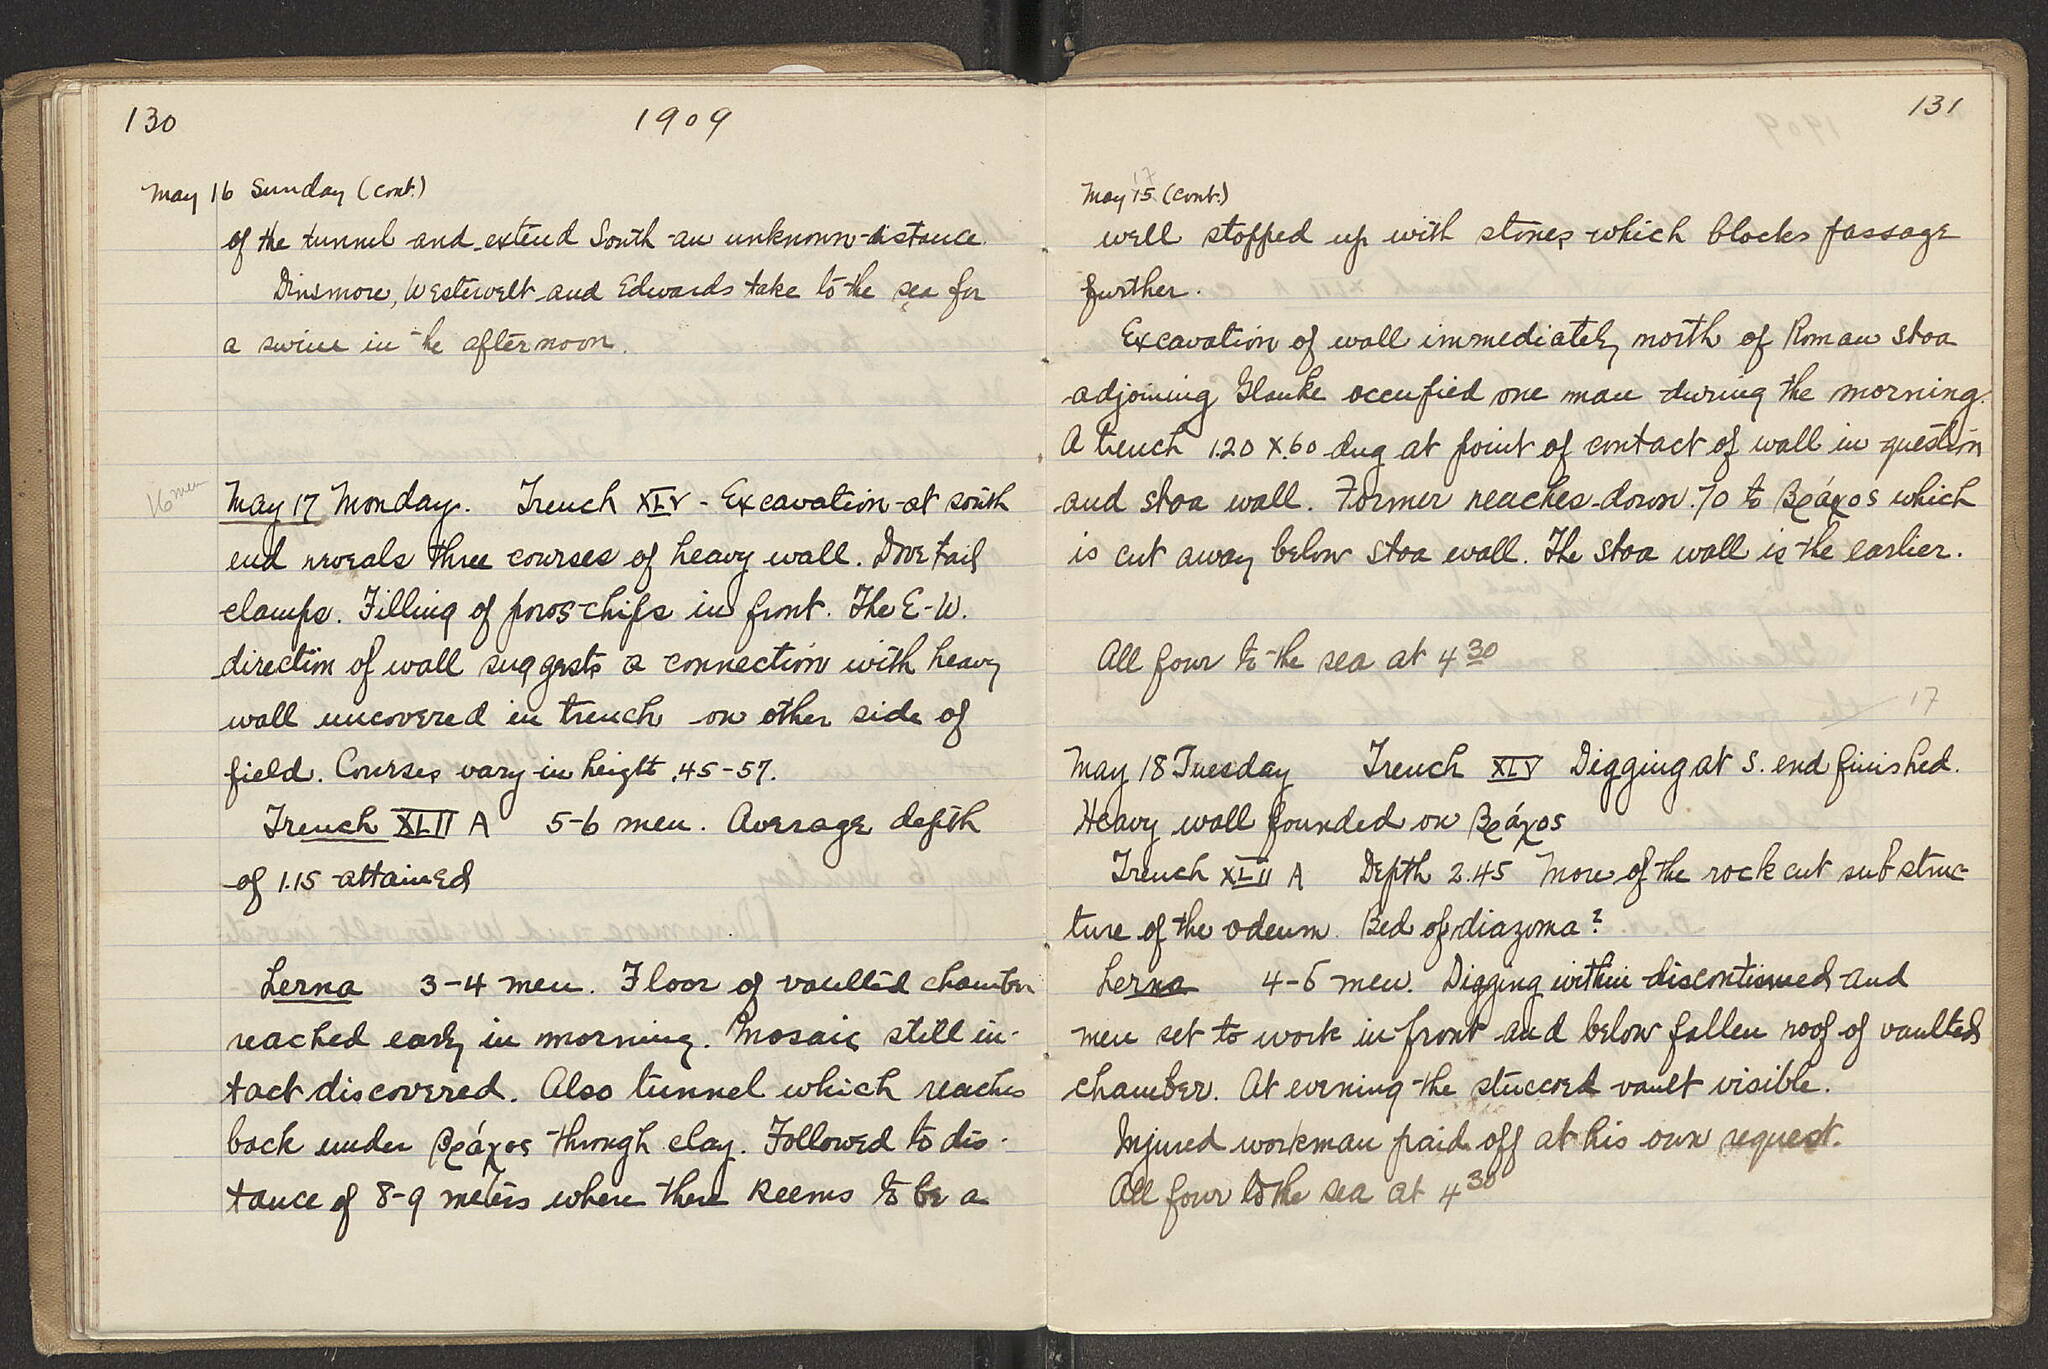 130
1909
May 16 Sunday (cont.)
of the tunnel and extend South an unknown distance.
Dinsmore, Westervelt and Edwards take to the sea for
a swim in the afternoon.
16 men
May 17 Monday. Trench XLV - Excavation at south
end reveals three courses of heavy wall. Dove tail
clamps. Filling of poros chips in front. The E-W.
direction of wall suggests a connection with heavy
wall uncovered in trench on other side of
field. Courses vary in height .45-57.
Trench XLII A 5-6 men. Average depth
of 1.15 attained
Lerna 3-4 men. Floor of vaulted chamber
reached early in morning. Mosaic still in-
tact discovered. Also tunnel which reaches
back under βράχος through clay. Followed to dis-
tance of 8-9 meters where there seems to be a
131
17
May 15 (cont.)
well stopped up with stones which blocks passage
further.
Excavation of wall immediately north of Roman stoa
adjoining Glauke occupied one man during the morning.
A trench 1.20 X .60 dug at point of contact of wall in question
and stoa wall. Former reaches down .70 to βράχος which
is cut away below stoa wall. The stoa wall is the earlier.
All four to the sea at 4 30
17
May 18 Tuesday Trench XLV Digging at S. end finished.
Heavy wall founded on βράχος
Trench XLII A Depth 2.45 More of the rock cut substruc-
ture of the odeum. Bed of diazoma?
Lerna 4-5 men. Digging within discontinued and
men set to work in front and below fallen roof of vaulted
chamber. At evening the stuccoed vault visible.
Injured workman paid off at his own request.
All four to the sea at 4 30